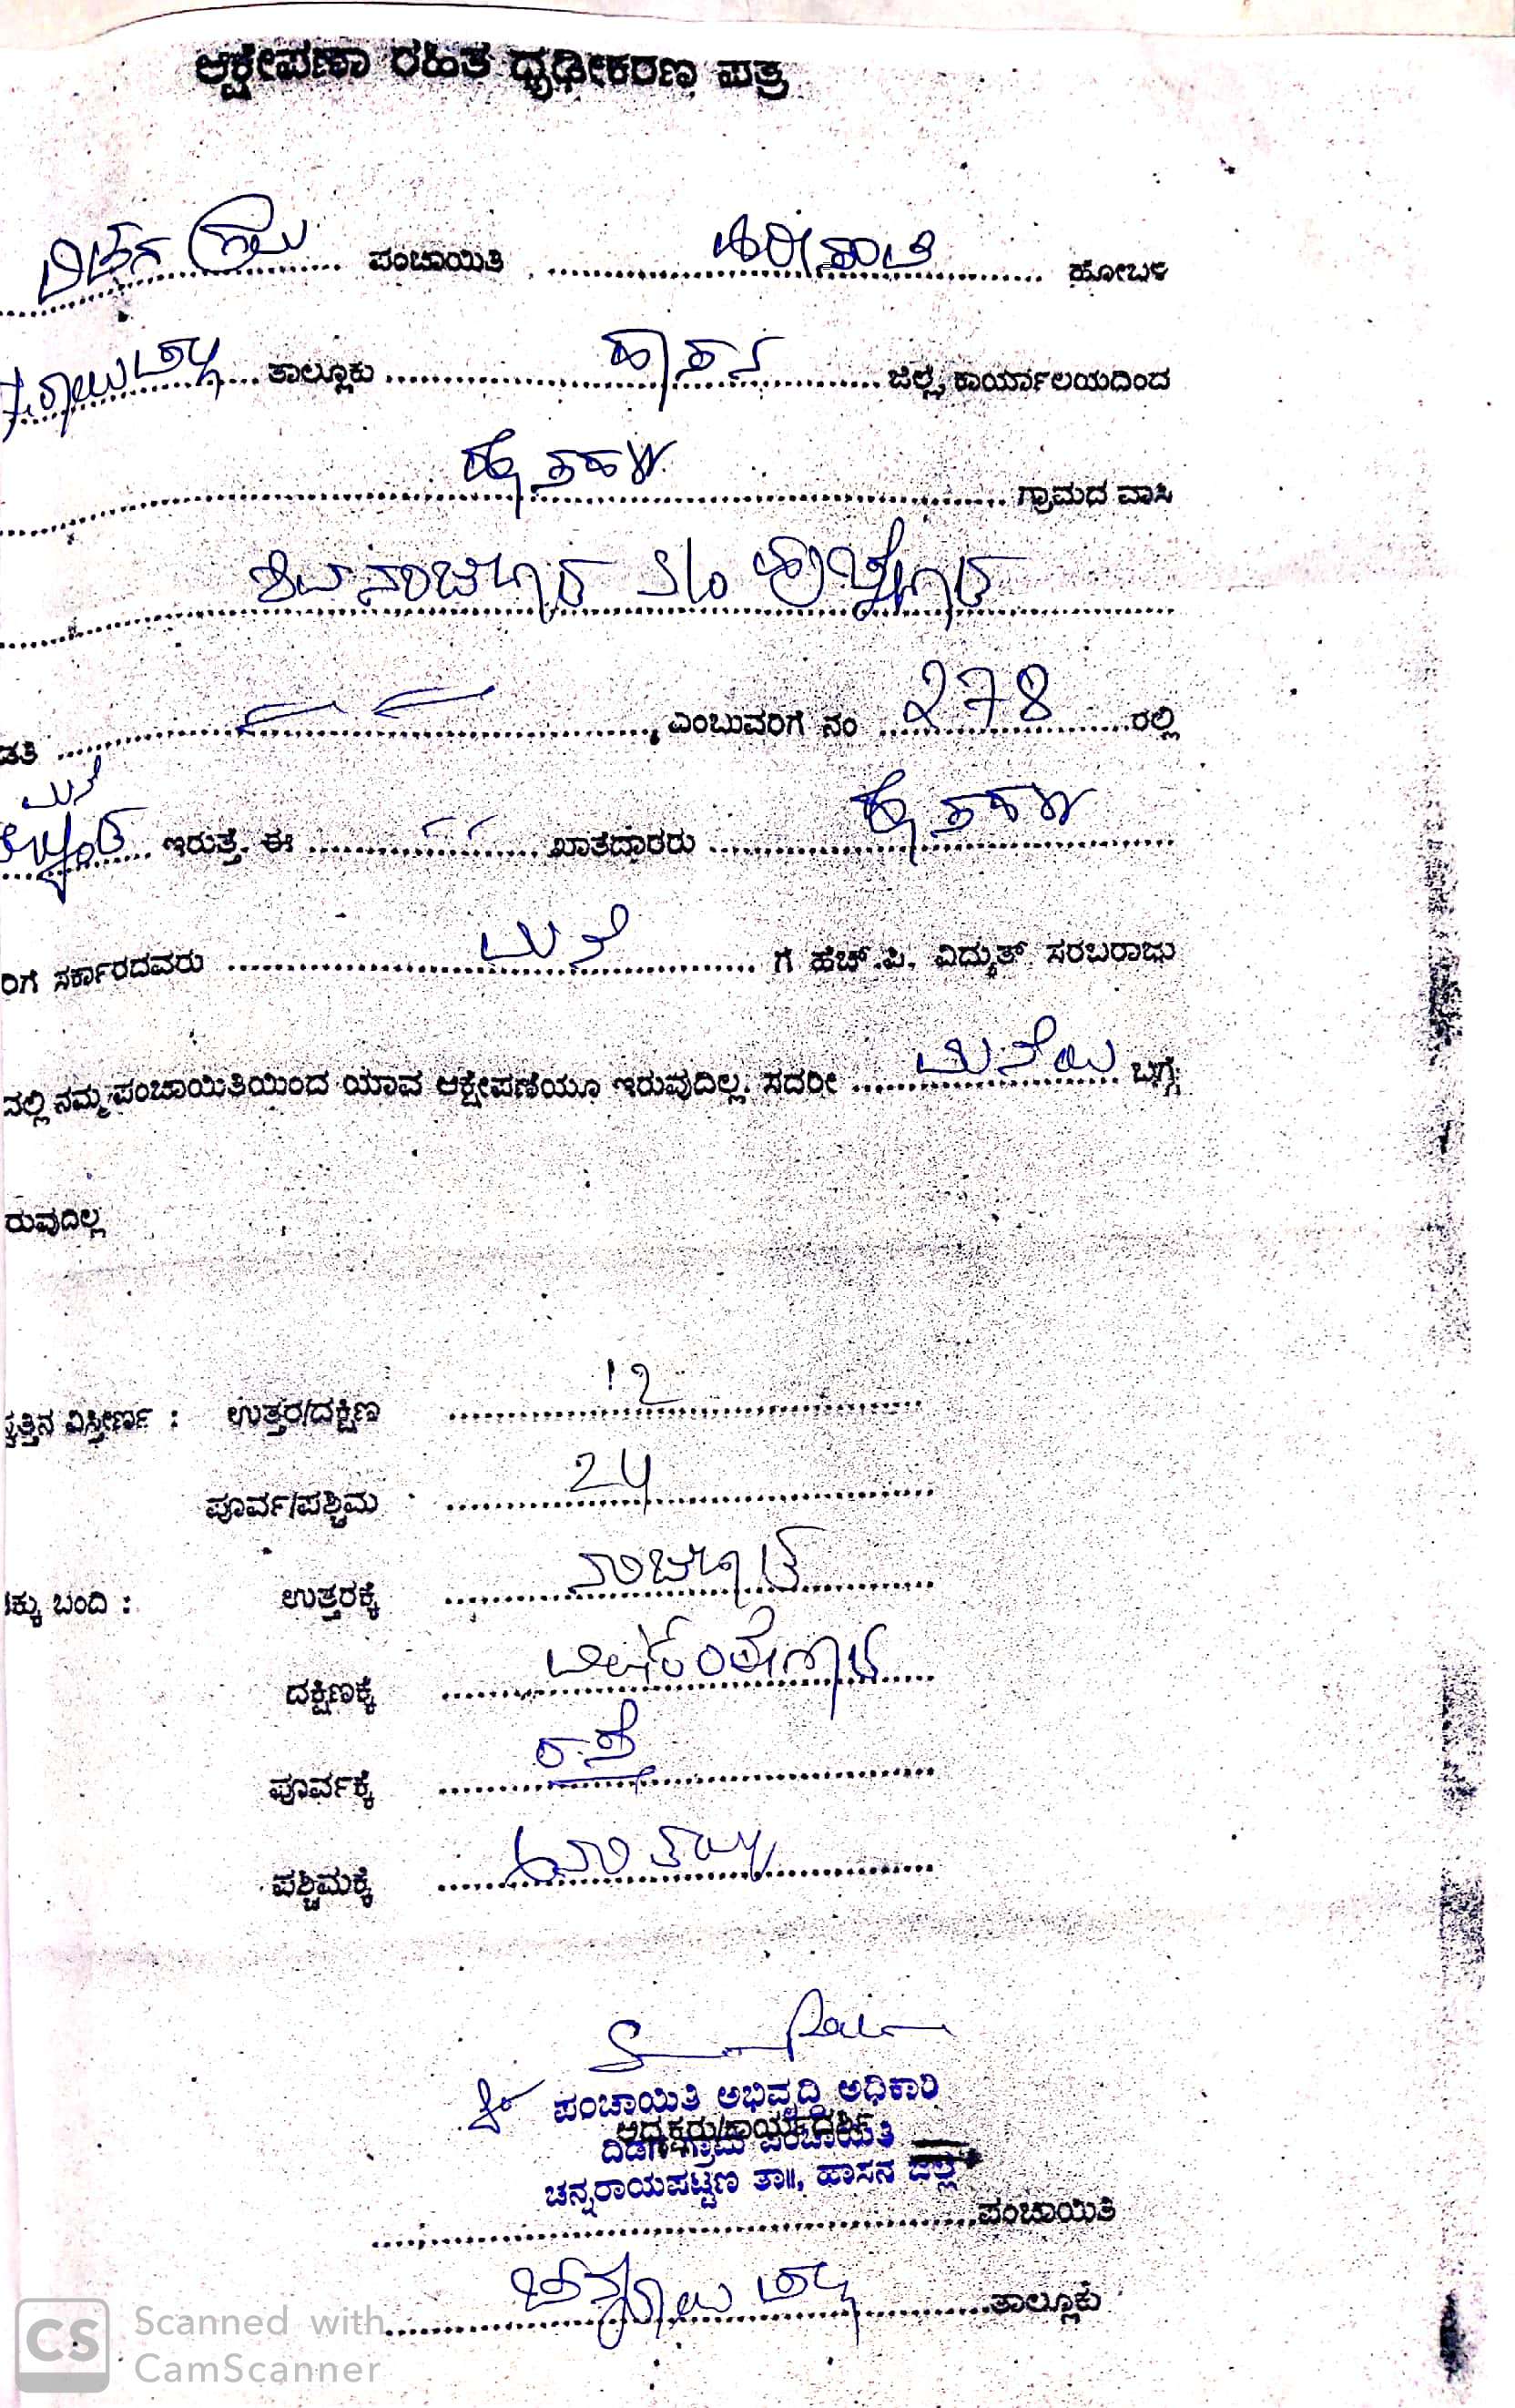 ಆಕ್ಷೇಪಣಾ ರಹಿತ ಧೃಢೀಕರಣ ಪತ್ರ
ದಿಡಗ ಗ್ರಾಮ ಪಂಚಾಯಿತಿ ಹಿರೀಸಾವೆ ಹೋಬಳಿ
ತಾಲ್ಲೂಕು ಹಾಸನ ಜಿಲ್ಲೆ, ಕಾರ್ಯಾಲಯದಿಂದ
ಗ್ರಾಮದ ವಾಸಿ
ಶಿವನಂಜೇಗೌಡ S/o
ಡತಿ ಎಂಬುವರಿಗೆ ನಂ 278 ರಲ್ಲಿ
ಮನೆ
ಇರುತ್ತೆ. ಈ ಖಾತೆದಾರರು
ರಿಗೆ ಸರ್ಕಾರದವರು ಮನೆ ಗೆ ಹೆಚ್.ಪಿ. ವಿದ್ಯುತ್ ಸರಬರಾಜು
ನಲ್ಲಿ ನಮ್ಮ ಪಂಚಾಯಿತಿಯಿಂದ ಯಾವ ಆಕ್ಷೇಪಣೆಯೂ ಇರುವುದಿಲ್ಲ. ಸದರೀ ಮನೆಯ ಬಗ್ಗೆ
ರುವುದಿಲ್ಲ
ಸ್ವತ್ತಿನ ವಿಸ್ತೀರ್ಣ : ಉತ್ತರ/ದಕ್ಷಿಣ 12
ಪೂರ್ವ/ಪಶ್ಚಿಮ 24
ಕ್ಕು ಬಂದಿ : ಉತ್ತರಕ್ಕೆ ನಂಜೇಗೌಡ
ದಕ್ಷಿಣಕ್ಕೆ
ಪೂರ್ವಕ್ಕೆ ರಸ್ತೆ
ಪಶ್ಚಿಮಕ್ಕೆ
ಪಂಚಾಯಿತಿ ಅಭಿವೃದ್ಧಿ ಅಧಿಕಾರಿ
ಅಧ್ಯಕ್ಷರು/ಕಾರ್ಯದರ್ಶಿ
ದಿಡಗ ಗ್ರಾಮ ಪಂಚಾಯಿತಿ
ಚನ್ನರಾಯಪಟ್ಟಣ ತಾ॥, ಹಾಸನ ಜಿಲ್ಲೆ
ಪಂಚಾಯಿತಿ
ತಾಲ್ಲೂಕು
CS Scanned with
CamScanner